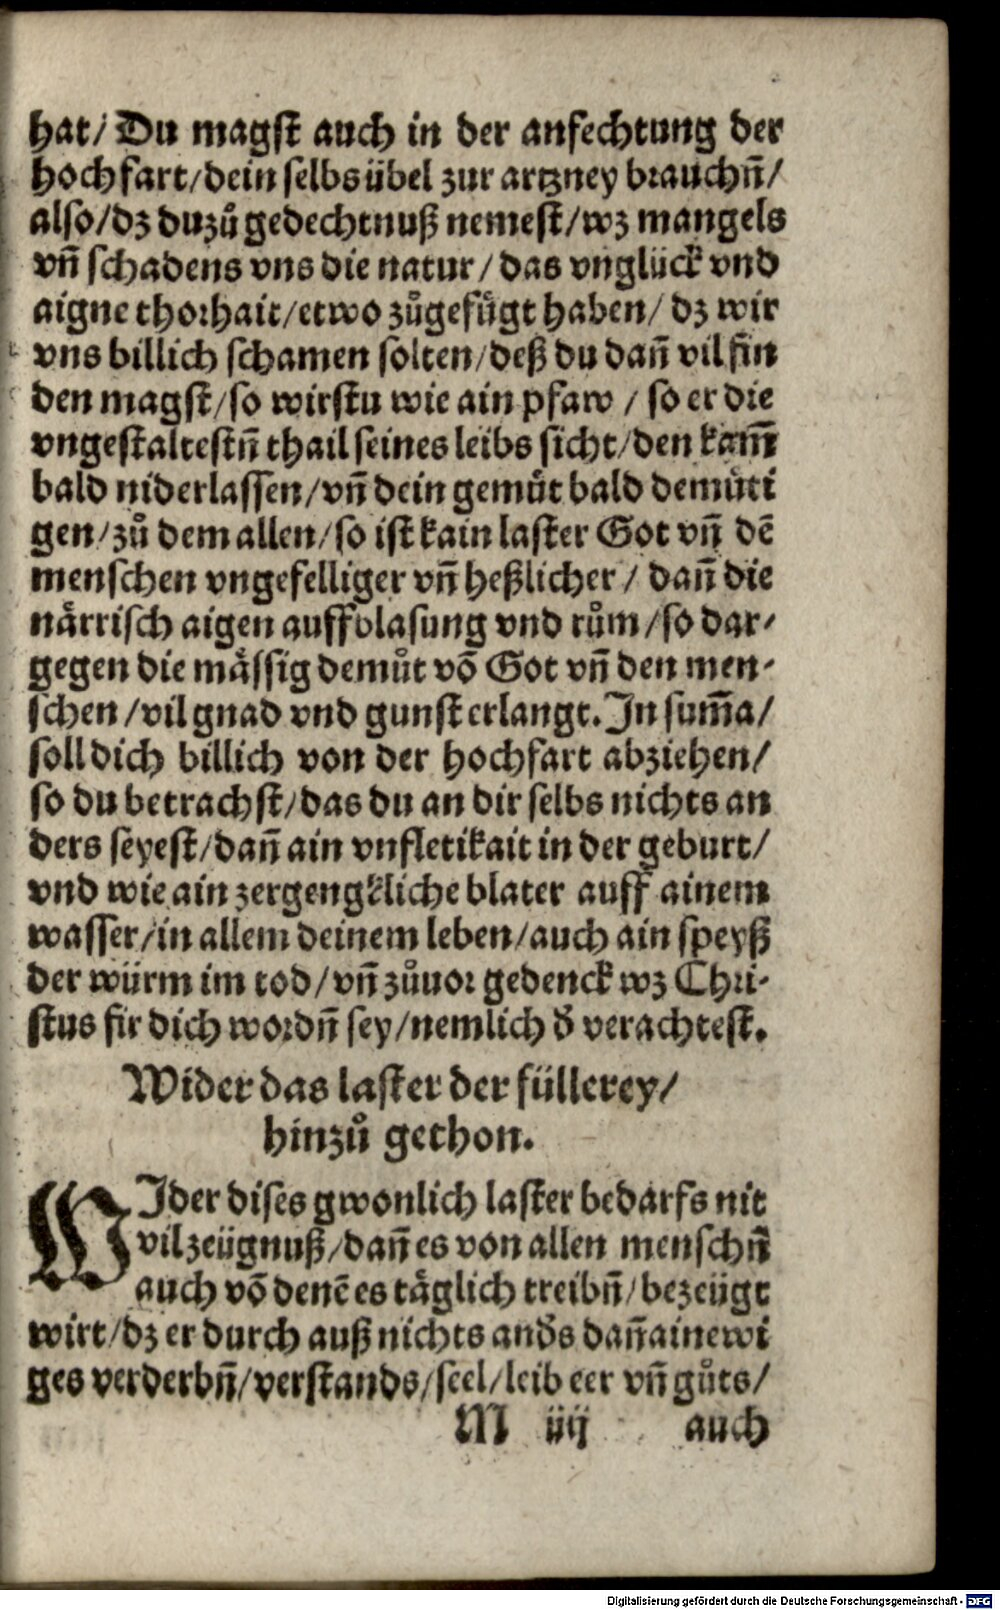 hat/ Du magst auch in der anfechtung der
hochfart/dein selbs übel zur artzney brauchñ/
also/dz du zů gedechtnuß nemest/wz mangels
vñ schadens vns die natur/ das vnglück vnd
aigne thorhait/etwo zůgefůgt haben/ dz wir
vns billich schamen solten/deß du dañ vil fin
den magst/so wirstu wie ain pfaw / so er die
vngestaltestñ thail seines leibs sicht/den kam̃
bald niderlassen/vñ dein gemůt bald demůti
gen/zů dem allen/so ist kain laster Got vñ dẽ
menschen vngefelliger vñ heßlicher/ dañ die
nårrisch aigen auffblasung vnd rům/so dar-
gegen die måssig demůt võ Got vñ den men-
schen/vil gnad vnd gunst erlangt. In sum̃a/
soll dich billich von der hochfart abziehen/
so du betrachst/das du an dir selbs nichts an
ders seyest/dañ ain vnfletikait in der geburt/
vnd wie ain zergengkliche blater auff ainem
wasser/in allem deinem leben/auch ain speyß
der würm im tod/vñ zůuor gedenck wz Chri-
stus fir dich wordñ sey/nemlich d̕ verachtest.
Wider das laster der füllerey/
hinzů gethon.
WIder dises gwonlich laster bedarfs nit
vil zeügnuß/dañ es von allen menschñ
auch võ denẽ es tåglich treibñ/bezeügt
wirt/dz er durch auß nichts and̕s dañ ain ewi
ges verderbñ/verstands/seel/leib eer vñ gůts/
M iiij auch
Digitalisierung gefördert durch die Deutsche Forschungsgemeinschaft - DFG